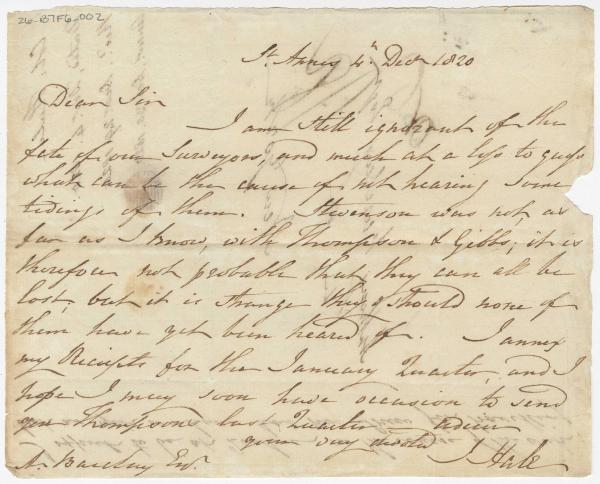 26-B7F6-002
St. Annes 4th Decr 1820
Dear Sir
I am still ignorant of the
fate of our Surveyors, and much at a loss to guess
what can be the cause of not hearing some
tidings of them. Stevenson was not, as
far as I know, with Thompson & Gibbs; it is
therefore not probable that they can all be
lost, but it is strange they should none of
them have yet been heard of. I annex
my Receipts for the January Quarter, and I
hope I may soon have occasion to send
you Thompson's last Quarter adieu
your very devoted J Hale
A. Barclay Esqr.